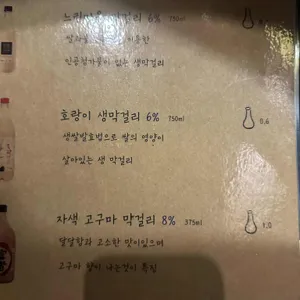 느린마을 막걸리 6% 750ml
인공첨가물이 없는 생막걸리
호랑이 생막걸리 6% 750ml
0.6
생쌀발효법으로 쌀의 영양이
살아있는 생 막걸리
자색 고구마 막걸리 8% 375ml
1.0
달달함과 고소한 맛이있으며
고구마 향이 나는것이 특징